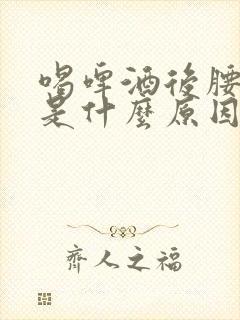 喝啤酒後腰
是什麼原因
齊人之福